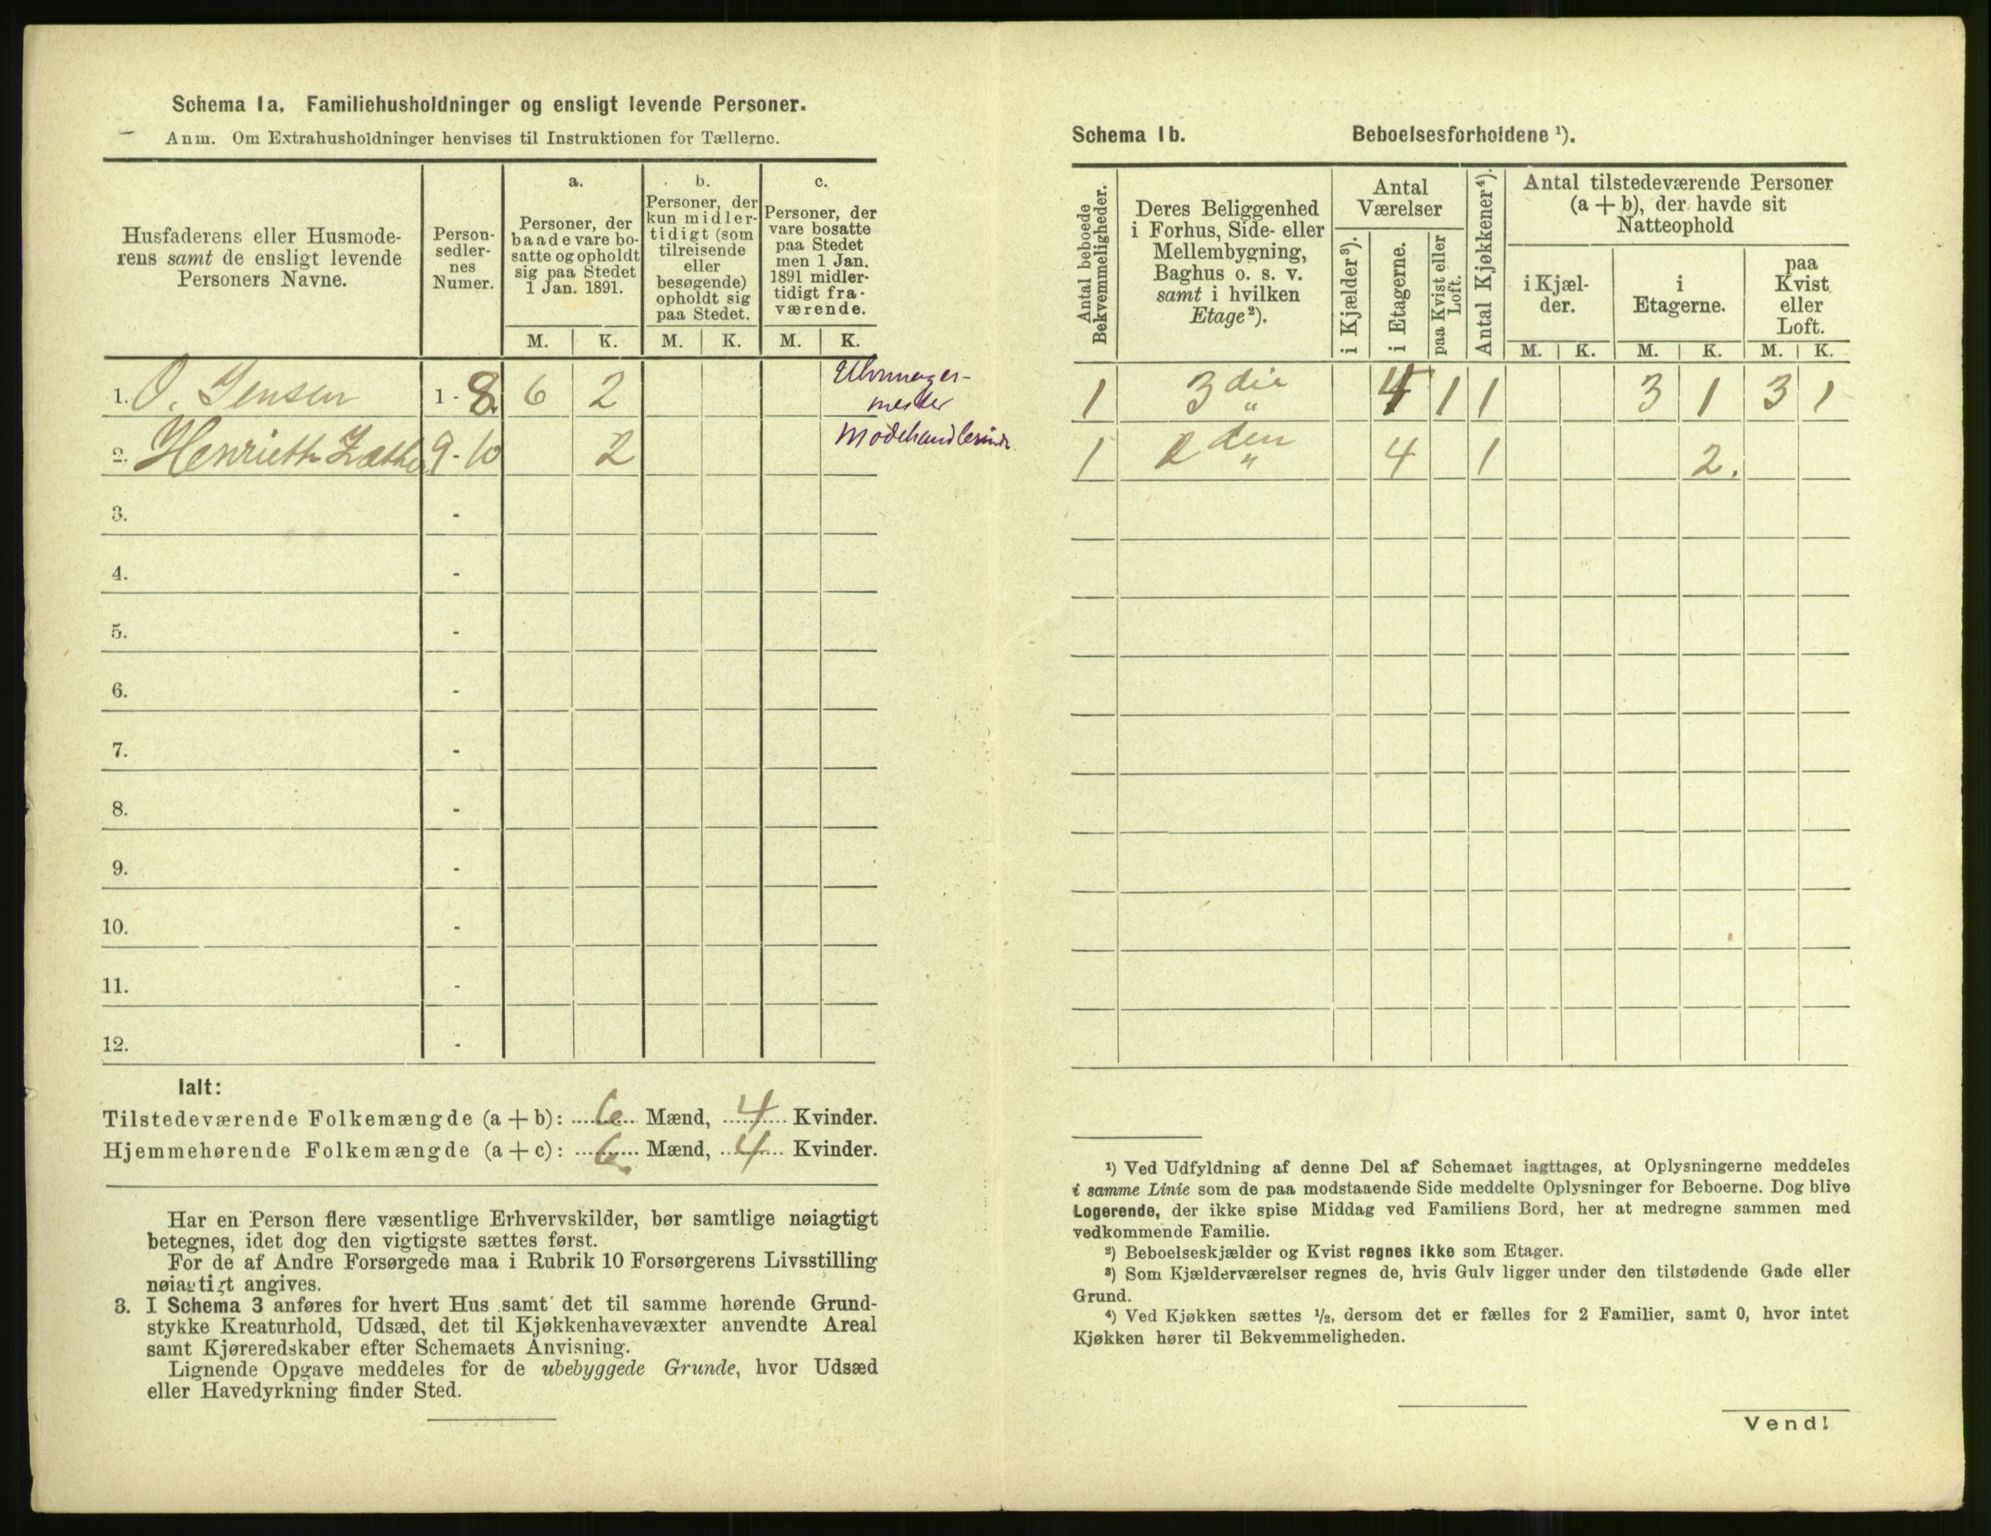 Schema 1a. Familiehusholdninger og ensligt levende Personer.
Anm. Om Extrahusholdninger henvises til Instruktionen for Tællerne.
Husfaderens eller Husmode-
rens samt de ensligt levende
Personers Navne.
Person-
sedler-
nes
Numer.
a.
Personer, der
baade vare bo-
satte og opholdt
sig paa Stedet
1 Jan. 1891.
b.
Personer, der
kun midler-
tidigt (som
tilreisende
eller
besøgende)
opholdt sig
paa Stedet.
c.
Personer, der
vare bosatte
paa Stedet
men 1 Jan.
1891 midler-
tidigt fra-
værende.
M. K. M. K. M. K.
1. O. Jensen 1 - 8 6 2 Uhrmager-
mester
2. Henriette 9 - 10 2 Modehandlerinde
3. -
4. -
5. -
6. -
7. -
8. -
9. -
10. -
11. -
12. -
Ialt:
Tilstedeværende Folkemængde (a + b): 6 Mænd, 4 Kvinder.
Hjemmehørende Folkemængde (a + c): 6 Mænd, 4 Kvinder.
Har en Person flere væsentlige Erhvervskilder, bør samtlige nøiagtigt
betegnes, idet dog den vigtigste sættes først.
For de af Andre Forsørgede maa i Rubrik 10 Forsørgerens Livsstilling
nøiagtigt angives.
3. I Schema 3 anføres for hvert Hus samt det til samme hørende Grund-
stykke Kreaturhold, Udsæd, det til Kjøkkenhavevæxter anvendte Areal
samt Kjøreredskaber efter Schemaets Anvisning.
Lignende Opgave meddeles for de ubebyggede Grunde, hvor Udsæd
eller Havedyrkning finder Sted.
Schema 1b. Beboelsesforholdene ¹).
Antal beboede
Bekvemmeligheder.
Deres Beliggenhed
i Forhus, Side- eller
Mellembygning,
Baghus o. s. v.
samt i hvilken
Etage²).
Antal
Værelser
i Kjælder³).
i Etagerne.
paa Kvist eller
Loft.
Antal Kjøkkener⁴).
Antal tilstedeværende Personer
(a + b), der havde sit
Natteophold
i Kjæl-
der.
i
Etagerne.
paa
Kvist
eller
Loft.
M. K. M. K. M. K.
1 3 die " 4 1 1 3 1 3 1
1 2 den " 4 1 2.
¹) Ved Udfyldning af denne Del af Schemaet iagttages, at Oplysningerne meddeles
i samme Linie som de paa modstaaende Side meddelte Oplysninger for Beboerne. Dog blive
Logerende, der ikke spise Middag ved Familiens Bord, her at medregne sammen med
vedkommende Familie.
²) Beboelseskjælder og Kvist regnes ikke som Etager.
³) Som Kjælderværelser regnes de, hvis Gulv ligger under den tilstødende Gade eller
Grund.
⁴) Ved Kjøkken sættes ½, dersom det er fælles for 2 Familier, samt 0, hvor intet
Kjøkken hører til Bekvemmeligheden.
Vend!